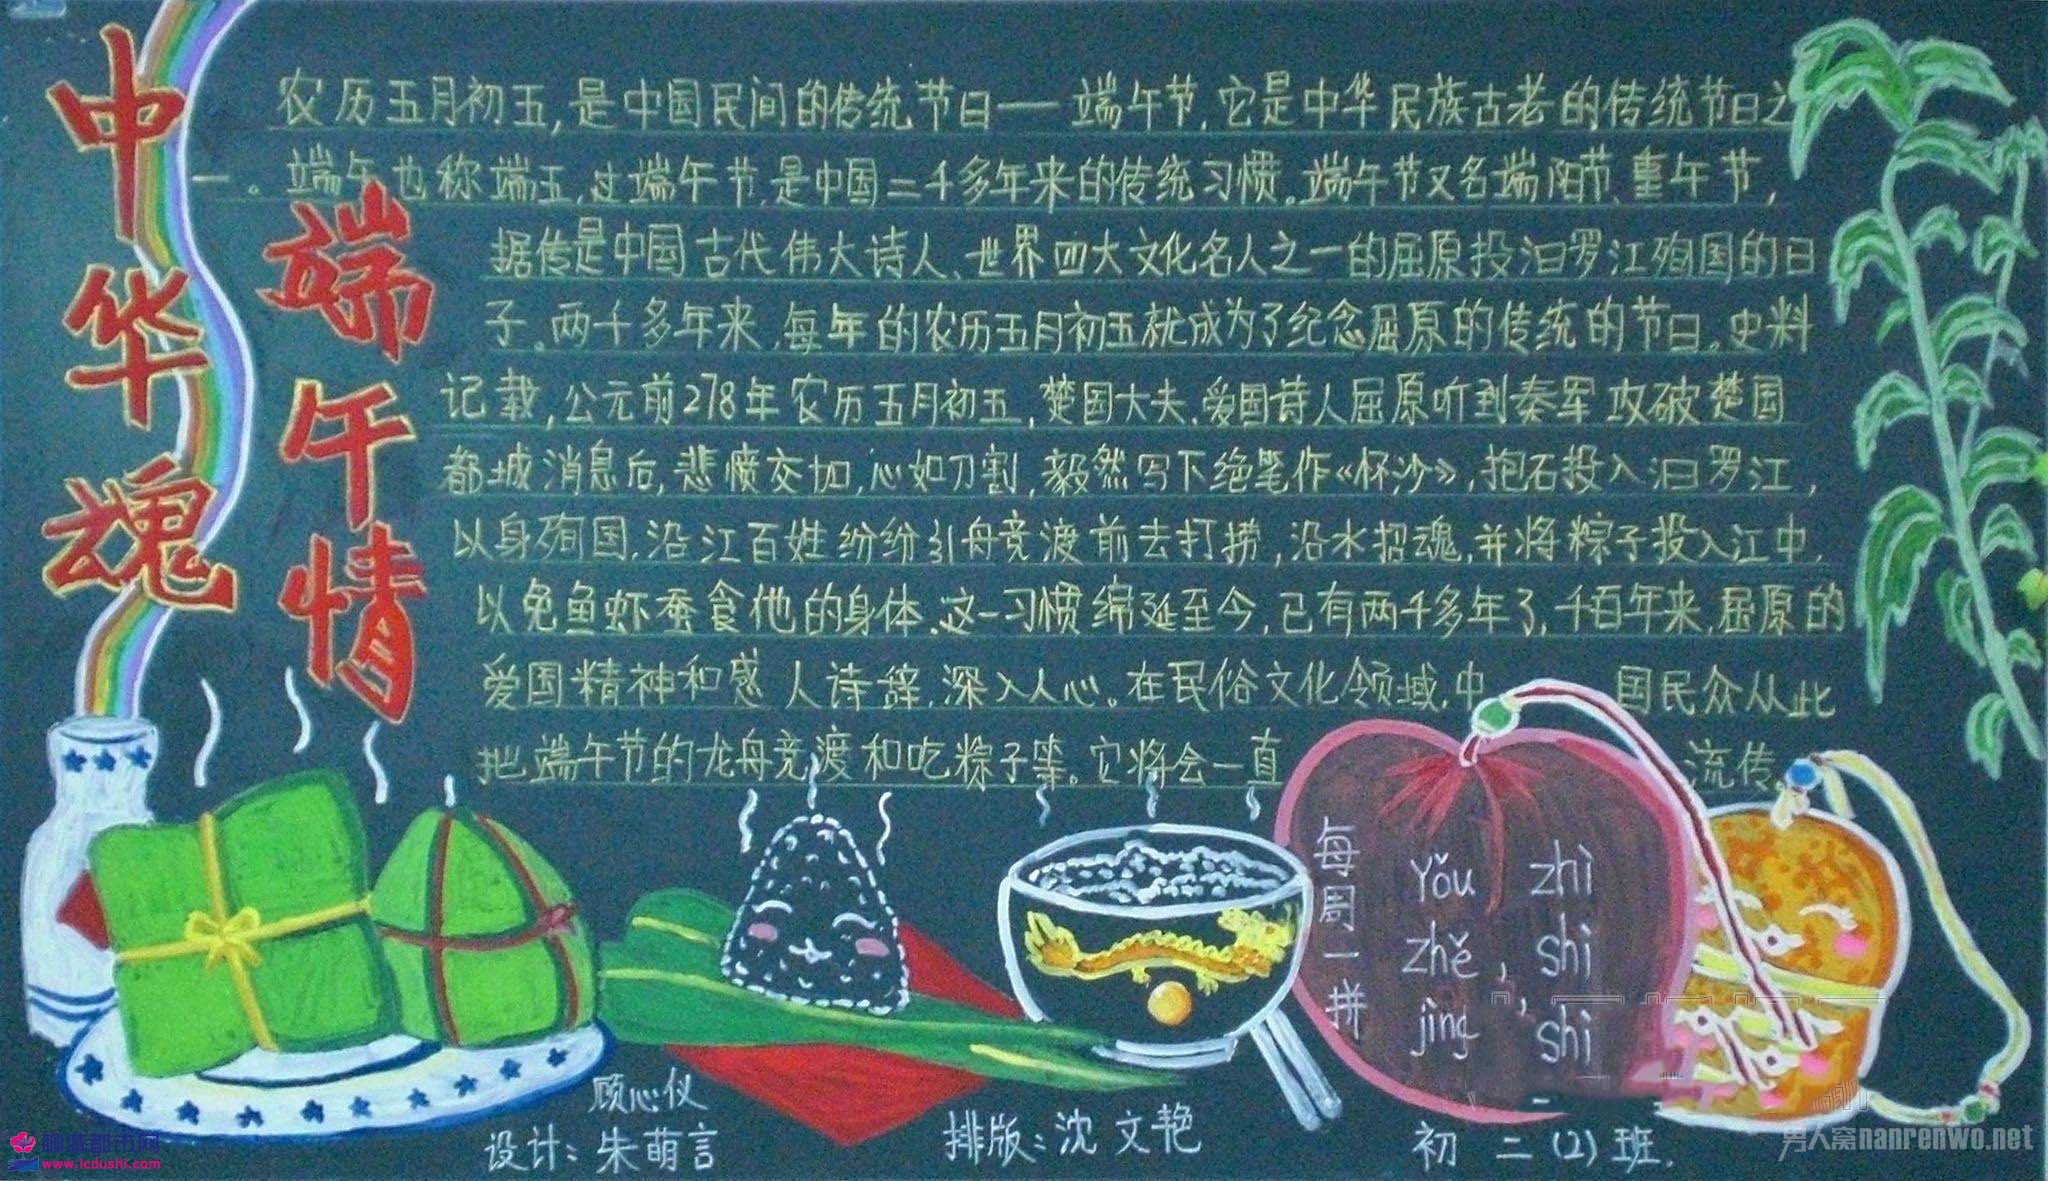 中华魂
端午情
农历五月初五，是中国民间的传统节日——端午节，它是中华民族古老的传统节日之
一。端午也称端五，过端午节，是中国二千多年来的传统习惯。端午节又名端阳节、重午节，
据传是中国古代伟大诗人、世界四大文化名人之一的屈原投汨罗江殉国的日
子。两千多年来，每年的农历五月初五就成为了纪念屈原的传统的节日。史料
记载，公元前278年农历五月初五，楚国大夫、爱国诗人屈原听到秦军攻破楚国
都城消息后，悲愤交加，心如刀割，毅然写下绝笔作《怀沙》，抱石投入汨罗江，
以身殉国。沿江百姓纷纷引舟竞渡前去打捞，沿水招魂，并将粽子投入江中，
以免鱼虾蚕食他的身体。这一习惯绵延至今，已有两千多年了，千百年来，屈原的
爱国精神和感人诗辞，深入人心。在民俗文化领域，中国民众从此
把端午节的龙舟竞渡和吃粽子等。它将会一直流传。
每周一拼
yǒu zhì
zhě， shì
jìng， shì
顾心仪
设计：朱萌言
排版：沈文艳
初二（2）班.
聊城都市网
www.lcdushi.com
男人窝nanrenwo.net